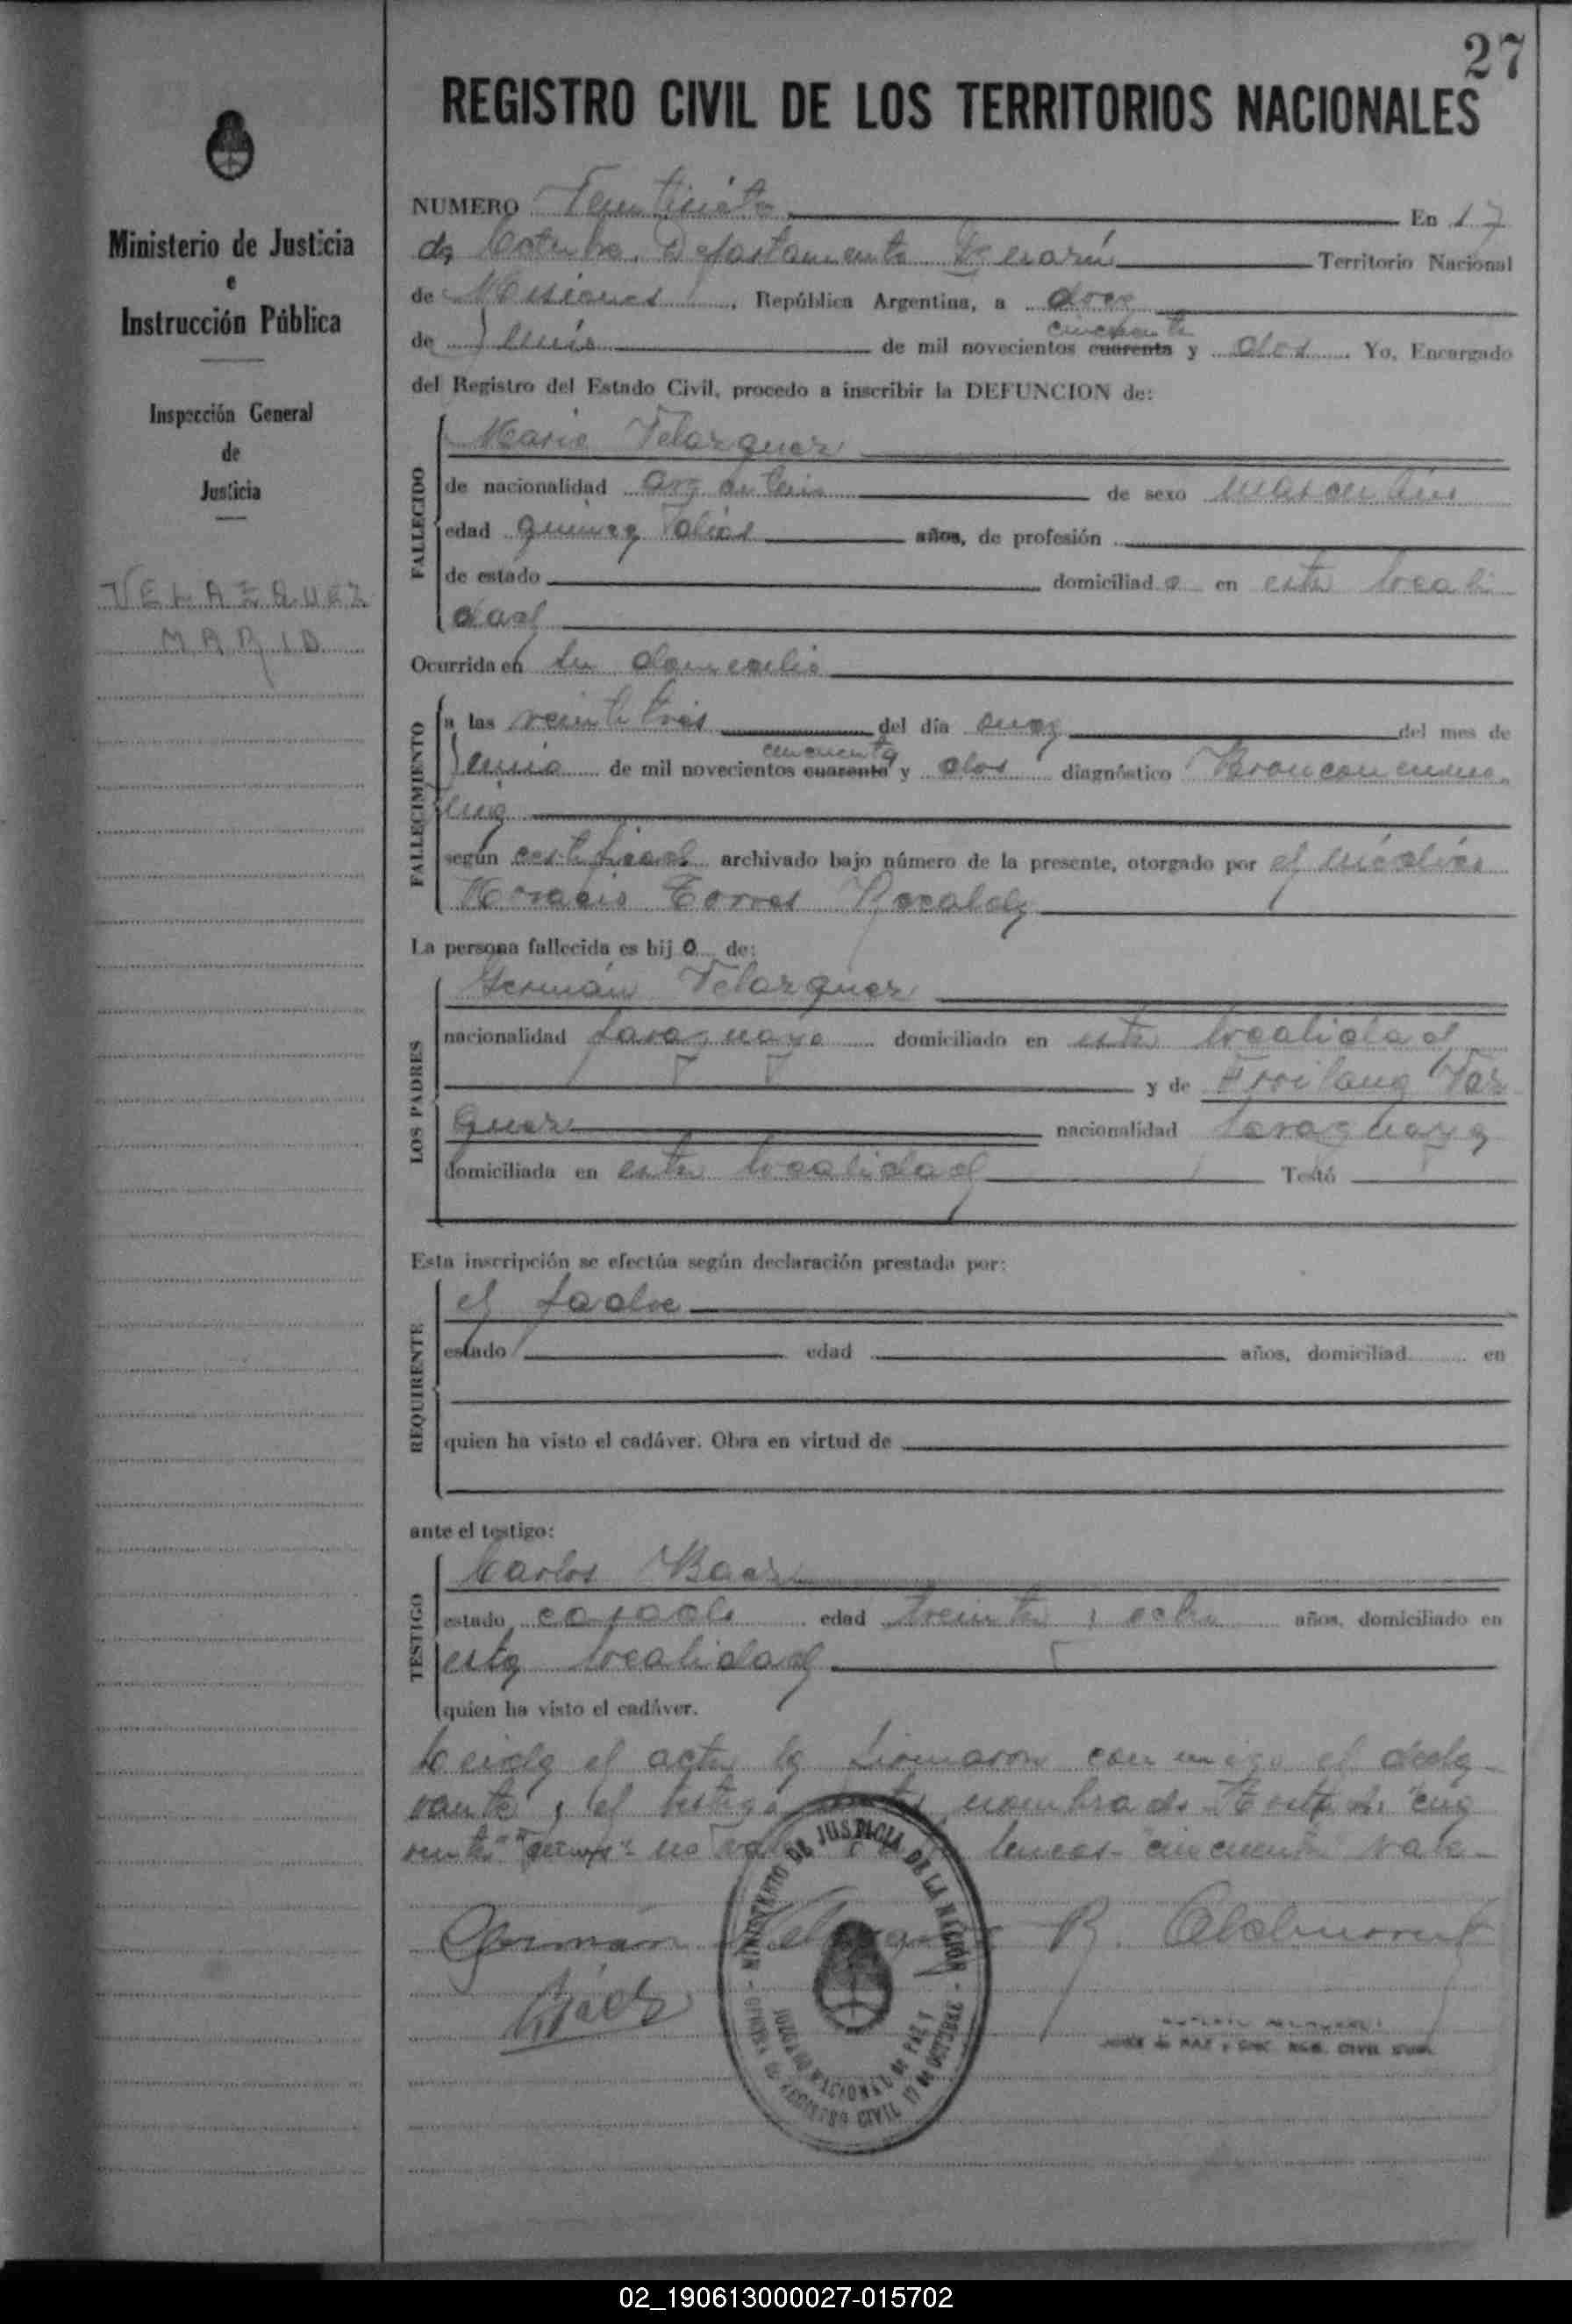 27
REGISTRO CIVIL DE LOS TERRITORIOS NACIONALES
Ministerio de Justicia
e
Instrucción Pública
Inspección General
de
Justicia
VELAZQUEZ
MARIO
NUMERO Veintisiete En 17
de Octubre, Departamento Territorio Nacional
de Misiones, República Argentina, a doce
de Junio de mil novecientos cuarenta cincuenta y dos. Yo, Encargado
del Registro del Estado Civil, procedo a inscribir la DEFUNCION de:
FALLECIDO
Mario Velazquez
de nacionalidad argentino de sexo masculino
edad quince dias años, de profesión
de estado domiciliado en esta locali
dad
Ocurrida en su domicilio
FALLECIMIENTO
a las veintitres del día once del mes de
Junio de mil novecientos cuarenta cincuenta y dos diagnóstico Bronconeumo
nia
según certificado archivado bajo número de la presente, otorgado por el médico
Horacio Torres Recalde
La persona fallecida es hijo de:
LOS PADRES
Germán Velazquez
nacionalidad paraguayo domiciliado en esta localidad
y de Froilana Vaz
quez nacionalidad paraguaya
domiciliada en esta localidad Testó
Esta inscripción se efectúa según declaración prestada por:
REQUIRENTE
el padre
estado edad años, domiciliad en
quien ha visto el cadáver. Obra en virtud de
ante el testigo:
TESTIGO
Carlos Baez
estado casado edad treinta y ocho años, domiciliado en
esta localidad
quien ha visto el cadáver.
Leida el acta la firmaron conmigo el decla
rante y el testigo nombrado "cua
renta" no lineas "cincuenta" vale
Germán Velazquez R.
Báez
MINISTERIO DE JUSTICIA DE LA NACIÓN
JUZGADO NACIONAL DE PAZ Y
OFICINA DE REGISTRO CIVIL 17 DE OCTUBRE
JUEZ DE PAZ y ENC. REG. CIVIL
02_190613000027-015702